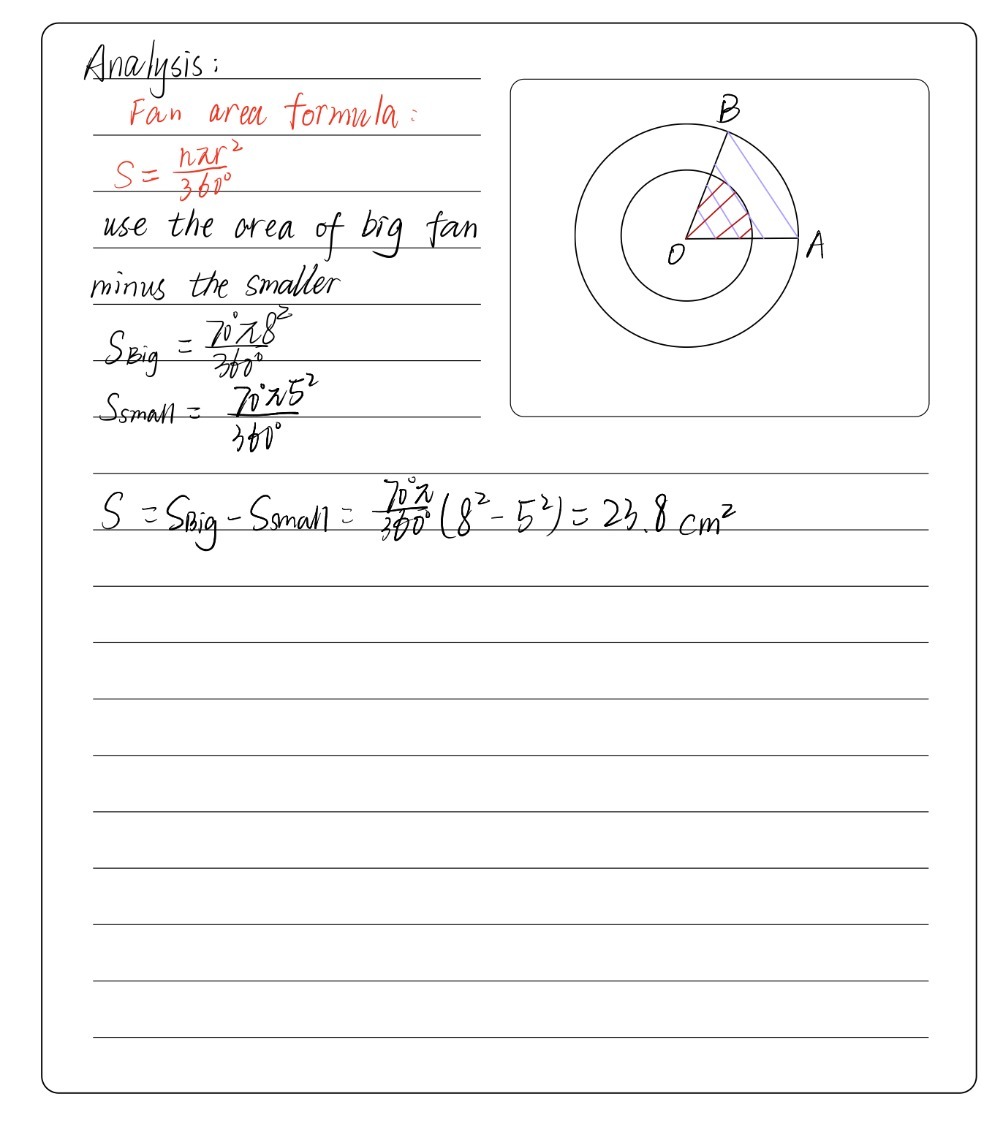 Analysis:
Fan area formula:
S = nπr² / 360°
use the area of big fan
minus the smaller
S_Big = 70°π8² / 360°
S_Small = 70°π5² / 360°
S = S_Big - S_Small = 70°π / 360° (8² - 5²) = 23.8 cm²
B
O
A